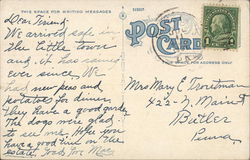 THIS SPACE FOR WRITING MESSAGES
POST CARD
Dear Friend
We arrived safe in
the little town
and it has rained
ever since. We
had new peas and
potatoes for dinner.
They have a good garden
The dogs were glad
to see me. Hope you
have a good time on the
estate.
Mrs Mary E Troutman
422 N. Main St
Butler
Penna.
1